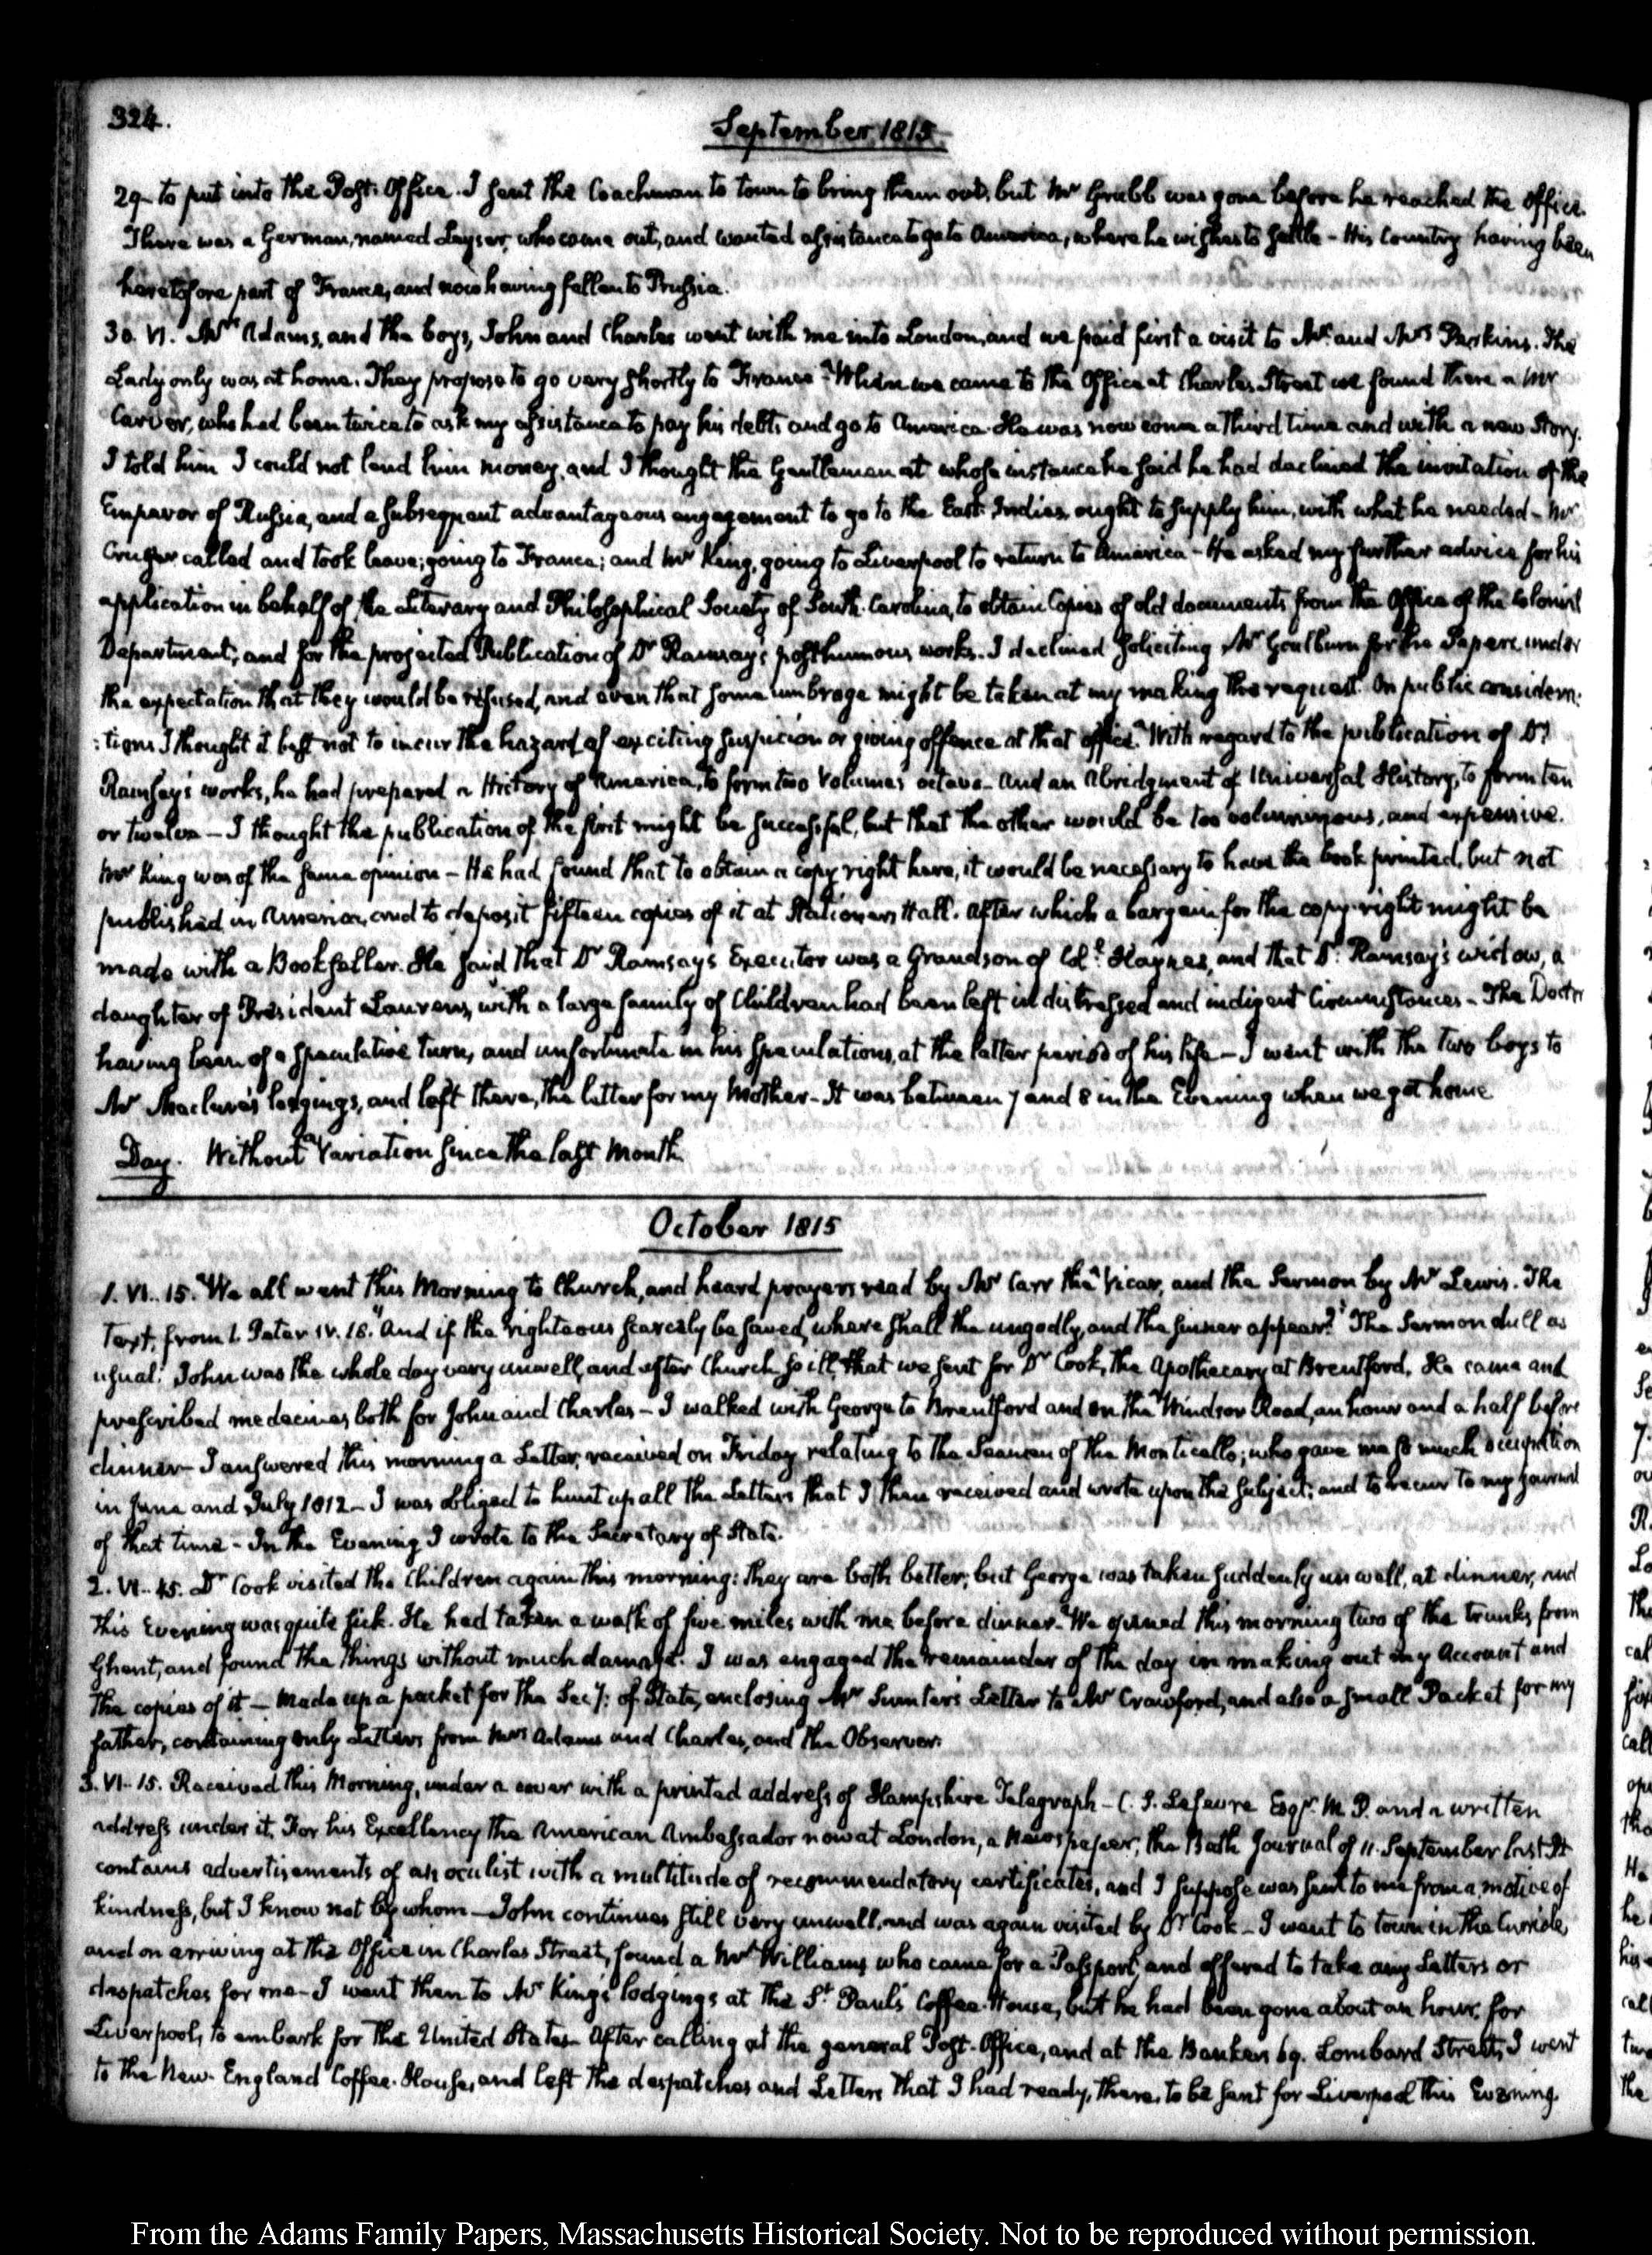 324.
September 1815
29 to put into the Post Office. I sent the Coachman to town to bring them out, but Mr Grubb was gone before he reached the Office.
There was a German, named Leyser, who came out, and wanted assistance to go to America, where he wishes to settle – His Country having been
heretofore part of France, and now having fallen to Prussia.
30. VI. Mrs Adams, and the boys, John and Charles went with me into London, and we paid first a visit to Mr and Mrs Perkins. The
Lady only was at home. They propose to go very shortly to France. When we came to the Office at Charles Street we found there a Mr
Carver, who had been twice to ask my assistance to pay his debts and go to America. He was now come a third time and with a new Story.
I told him I could not lend him money, and I thought the Gentleman at whose instance he said he had declined the invitation of the
Emperor of Russia, and a subsequent advantageous engagement to go to the East-Indies, ought to supply him, with what he needed – Mr
Cruger called and took leave; going to France; and Mr King, going to Liverpool to return to America – He asked my further advice for his
application in behalf of the Literary and Philosophical Society of South-Carolina, to obtain Copies of old documents from the Office of the Colonial
Department; and for the projected Publication of Dr Ramsay's posthumous works. I declined soliciting Mr Goulburn for the Papers, under
the expectation that they would be refused, and even that some umbrage might be taken at my making the request. On public considera-
:tions I thought it best not to incur the hazard of exciting suspicion or giving offence at that office. With regard to the publication of Dr
Ramsay's works, he had prepared a History of America, to form two Volumes octavo – and an Abridgment of Universal History, to form ten
or twelve – I thought the publication of the first might be successful, but that the other would be too voluminous, and expensive.
Mr King was of the same opinion – He had found that to obtain a copy right here, it would be necessary to have the book printed, but not
published in America, and to deposit fifteen copies of it at Stationers Hall. After which a bargain for the copy-right might be
made with a Bookseller. He said that Dr Ramsays Executor was a Grandson of Coll. Haynes, and that Dr. Ramsay's widow, a
daughter of President Laurens, with a large family of Children had been left in distressed and indigent Circumstances – The Doctor
having been of a speculative turn, and unfortunate in his speculations, at the latter period of his life – I went with the two boys to
Mr Maclure's lodgings, and left there, the letter for my Mother – It was between 7 and 8 in the Evening when we got home
Day. Without Variation since the last Month.
October 1815
1. VI. 15. We all went this Morning to Church, and heard prayers read by Mr Carr the Vicar, and the Sermon by Mr Lewis. The
Text, from 1. Peter IV. 18. "And if the righteous scarcely be saved, where shall the ungodly, and the sinner appear?" The Sermon dull as
usual. John was the whole day very unwell, and after Church so ill, that we sent for Dr Cook, the Apothecary at Brentford. He came and
prescribed medecines both for John and Charles – I walked with George to Brentford and on the Windsor Road, an hour and a half before
dinner – I answered this morning a Letter, received on Friday relating to the Seamen of the Monticello; who gave me so much occupation
in June and July 1812 – I was obliged to hunt up all the Letters that I then received and wrote upon the subject; and to recur to my journal
of that time – In the Evening I wrote to the Secretary of State.
2. VI. 45. Dr Cook visited the Children again this morning: they are both better; but George was taken suddenly unwell, at dinner, and
this Evening was quite sick. He had taken a walk of five miles with me before dinner. We opened this morning two of the trunks from
Ghent, and found the things without much damage. I was engaged the remainder of the day in making out my Account and
the copies of it – Made up a packet for the Secy: of State, enclosing Mr Sumter's Letter to Mr Crawford, and also a small Packet for my
father, containing only Letters from Mrs Adams and Charles, and the Observer.
3. VI. 15. Received this Morning, under a cover with a printed address of Hampshire Telegraph – C. S. Lefevre Esqr. M.P. and a written
address under it, For his Excellency the American Ambassador now at London, a Newspaper, the Bath Journal of 11. September last. It
contains advertisements of an oculist with a multitude of recommendatory certificates, and I suppose was sent to me from a motive of
kindness, but I know not by whom – John continues still very unwell, and was again visited by Dr Cook – I went to town in the Curricle,
and on arriving at the Office in Charles Street, found a Mr Williams who came for a Passport, and offered to take any Letters or
despatches for me – I went then to Mr King's lodgings at the St Paul's Coffee-House, but he had been gone about an hour, for
Liverpool, to embark for the United States – After calling at the general Post-Office, and at the Bankers 69. Lombard Street, I went
to the New-England Coffee-House, and left the despatches and Letters that I had ready, there, to be sent for Liverpool this Evening.
From the Adams Family Papers, Massachusetts Historical Society. Not to be reproduced without permission.